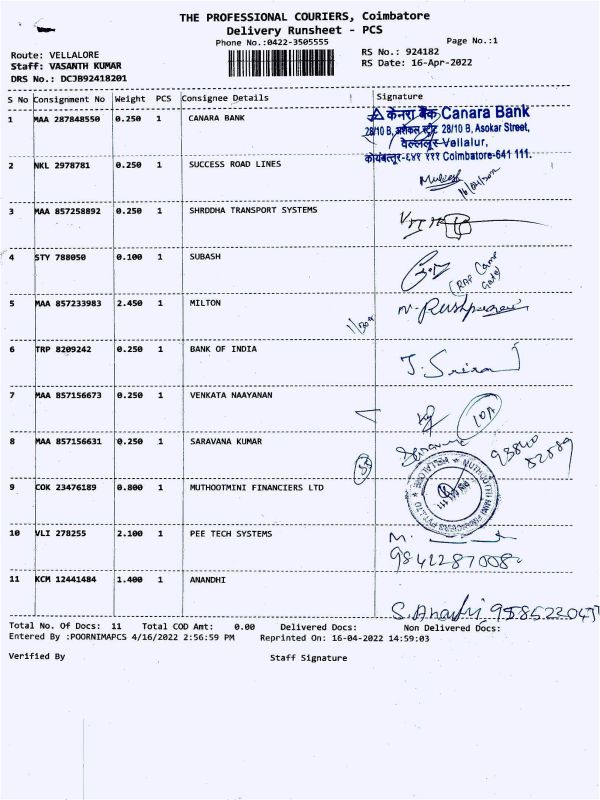 THE PROFESSIONAL COURIERS, Coimbatore
Delivery Runsheet - PCS
Phone No.:0422-3505555
Page No.:1
Route: VELLALORE
RS No.: 924182
Staff: VASANTH KUMAR
RS Date: 16-Apr-2022
DRS No.: DCJB92418201
S No Consignment No Weight PCS Consignee Details Signature
1 MAA 287848550 0.250 1 CANARA BANK
केनरा बैंक Canara Bank
28/10 B, अशोकर स्ट्रीट 28/10 B, Asokar Street,
वेल्लूर Vellalur,
कोयंबत्तूर-६४१ १११ Coimbatore-641 111.
2 NKL 2978781 0.250 1 SUCCESS ROAD LINES
16/04/2022
3 MAA 857258892 0.250 1 SHRDDHA TRANSPORT SYSTEMS
4 STY 788050 0.100 1 SUBASH
(RAF Camp Gate)
5 MAA 857233983 2.450 1 MILTON
6 TRP 8209242 0.250 1 BANK OF INDIA
7 MAA 857156673 0.250 1 VENKATA NAAYANAN
10A
8 MAA 857156631 0.250 1 SARAVANA KUMAR
93840
82589
9 COK 23476189 0.800 1 MUTHOOTMINI FINANCIERS LTD
10 VLI 278255 2.100 1 PEE TECH SYSTEMS
9841287008
11 KCM 12441484 1.400 1 ANANDHI
S. Anandhi
Total No. Of Docs: 11 Total COD Amt: 0.00 Delivered Docs: Non Delivered Docs:
Entered By :POORNIMAPCS 4/16/2022 2:56:59 PM Reprinted On: 16-04-2022 14:59:03
Verified By Staff Signature